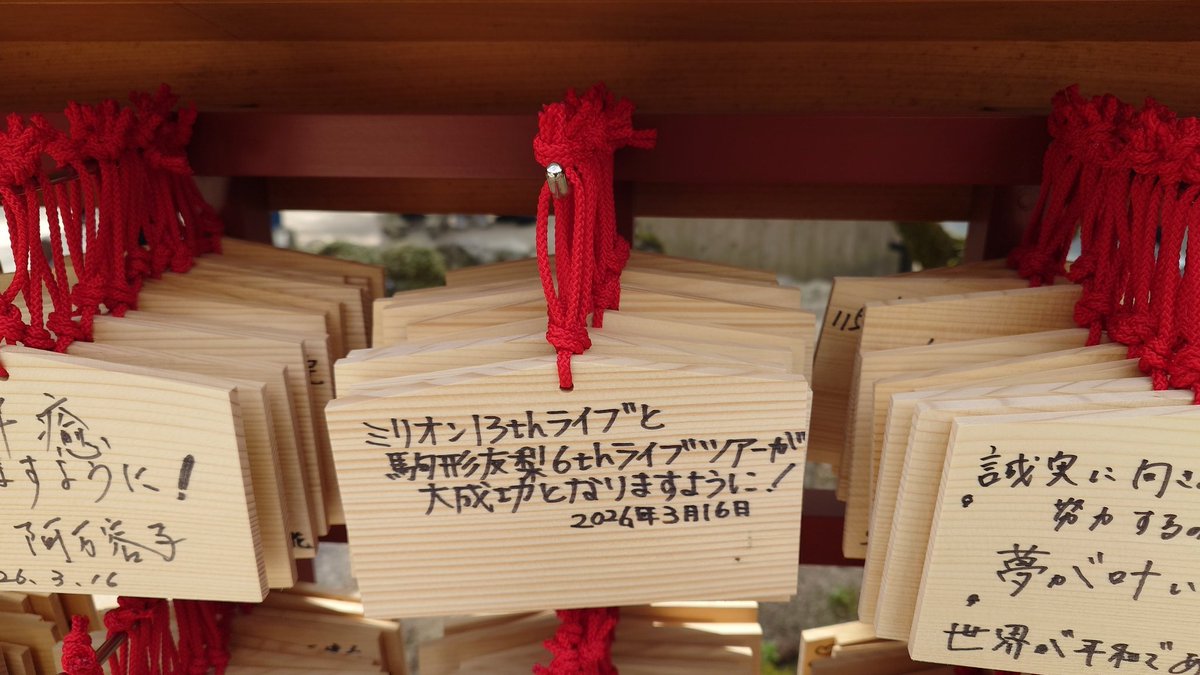 癒
ますように！
阿
26.3.16
ミリオン13thライブと
駒形友梨6thライブツアーが
大成功となりますように！
2026年3月16日
115
誠実に向き
努力する
夢が叶い
世界が平和であ